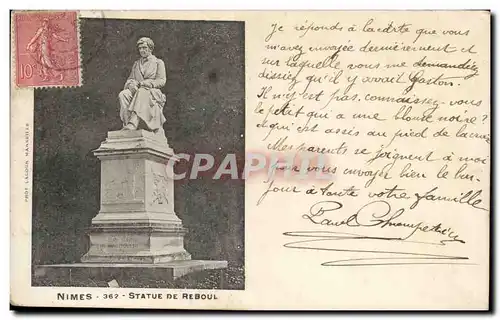 10
Je réponds à la carte que vous
m'avez envoyée dernièrement et
sur laquelle vous me demandiez
disiez qu'il y avait Gaston.
Il n'y est pas, connaissez-vous
le petit qui a une blouse noire ?
et qui est assis au pied de la
Mes parents se joignent à moi
pour vous envoyer bien le bon-
jour à toute votre famille
Paul
CPARAMA
PHOT LACOUR MARSEILLE
NIMES - 362 - STATUE DE REBOUL